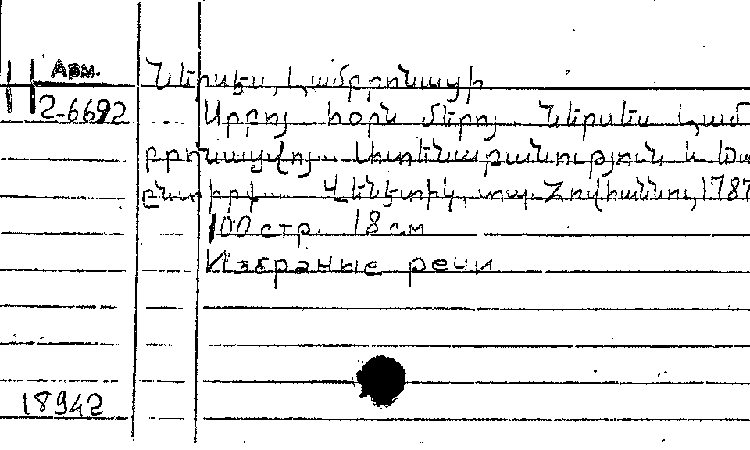 Арм.
Ներսես, Լամբրոնացի
2-6692
Սրբոյ հօրն մերոյ Ներսեսի Լամ
բրոնացւոյ Ատենաբանութիւն և
ընտիրք Վենետիկ, տպ. Հովհաննու, 1787
100 стр. 18 см
Избраные речи
18942